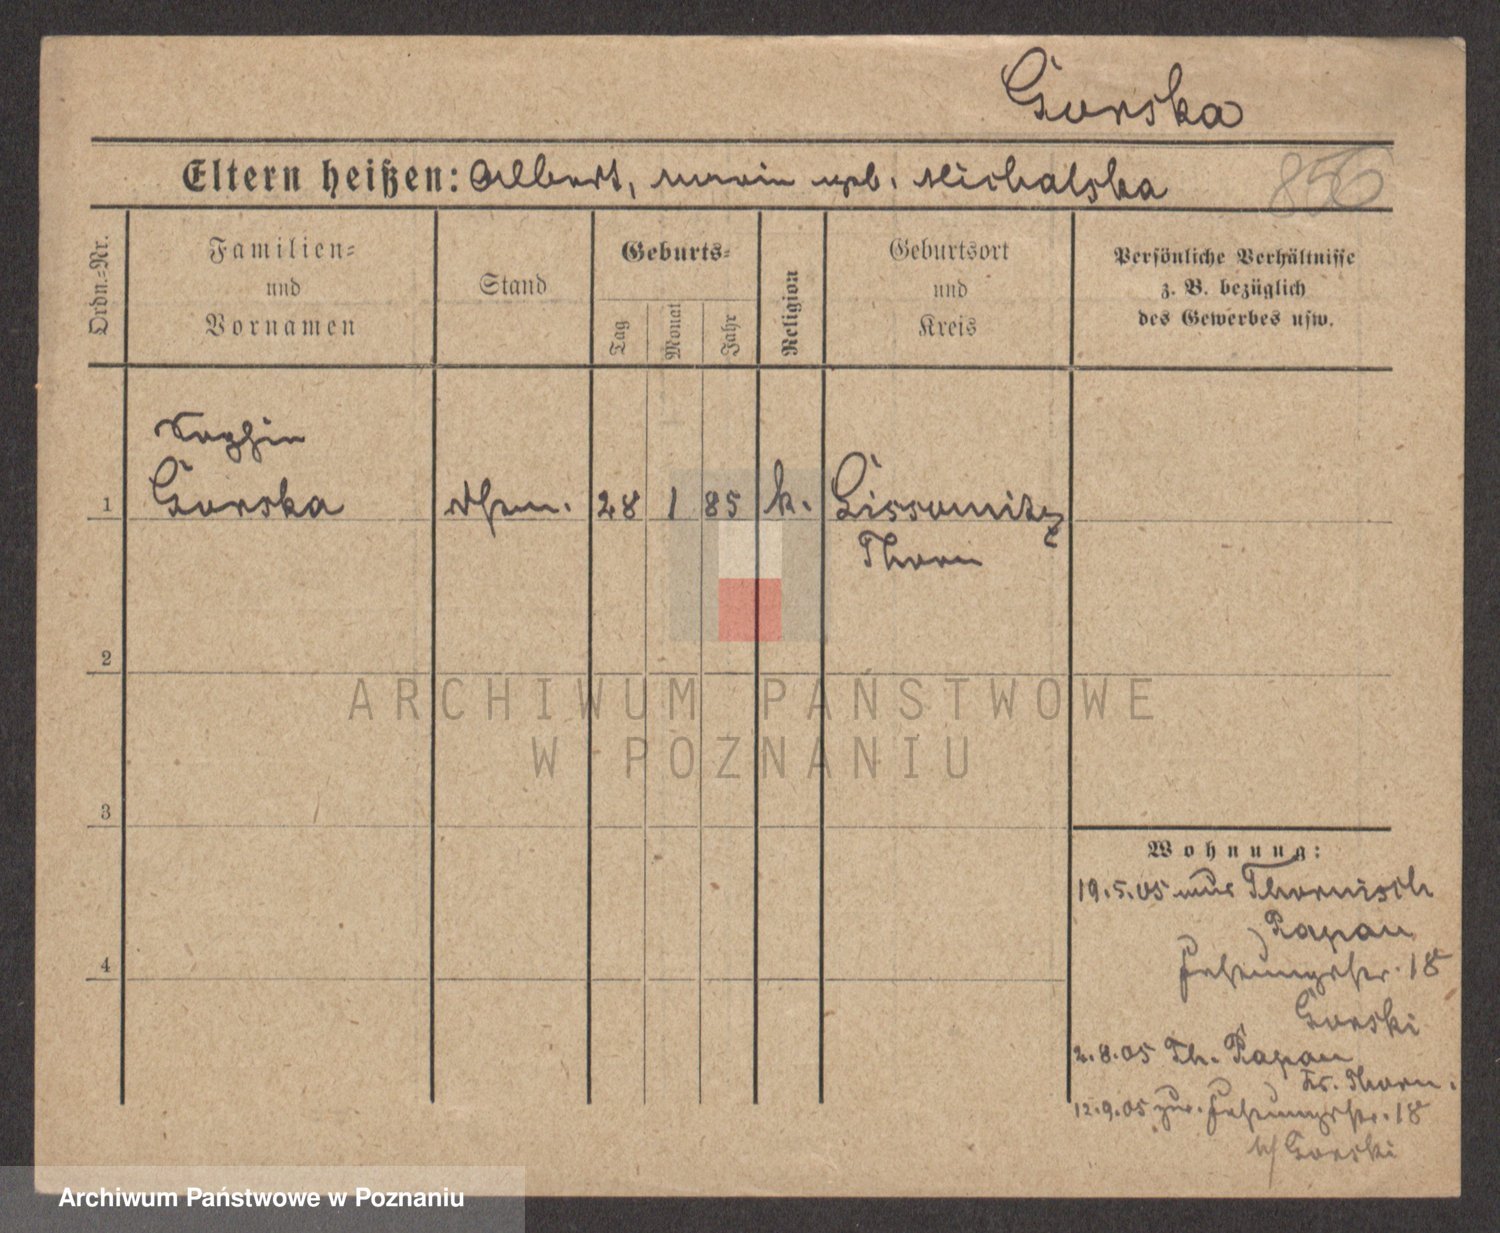 Gorska
Eltern heißen: Albert, Marie geb. Michalska
856
Ordn.=Nr.
Familien=
und
Vornamen
Stand
Geburts=
Tag
Monat
Jahr
Religion
Geburtsort
und
Kreis
Persönliche Verhältnisse
z. B. bezüglich
des Gewerbes usw.
Sophie
1 Gorska 28 1 85 k. Lissomitz
Thorn
2
3
4
ARCHIWUM PAŃSTWOWE
W POZNANIU
Wohnung:
19.5.05 aus Thornisch
Papau
Festungsstr. 18
Gorski
2.8.05 Th. Papau
Kr. Thorn.
12.9.05 zur. Festungsstr. 18
b/ Gorski
Archiwum Państwowe w Poznaniu